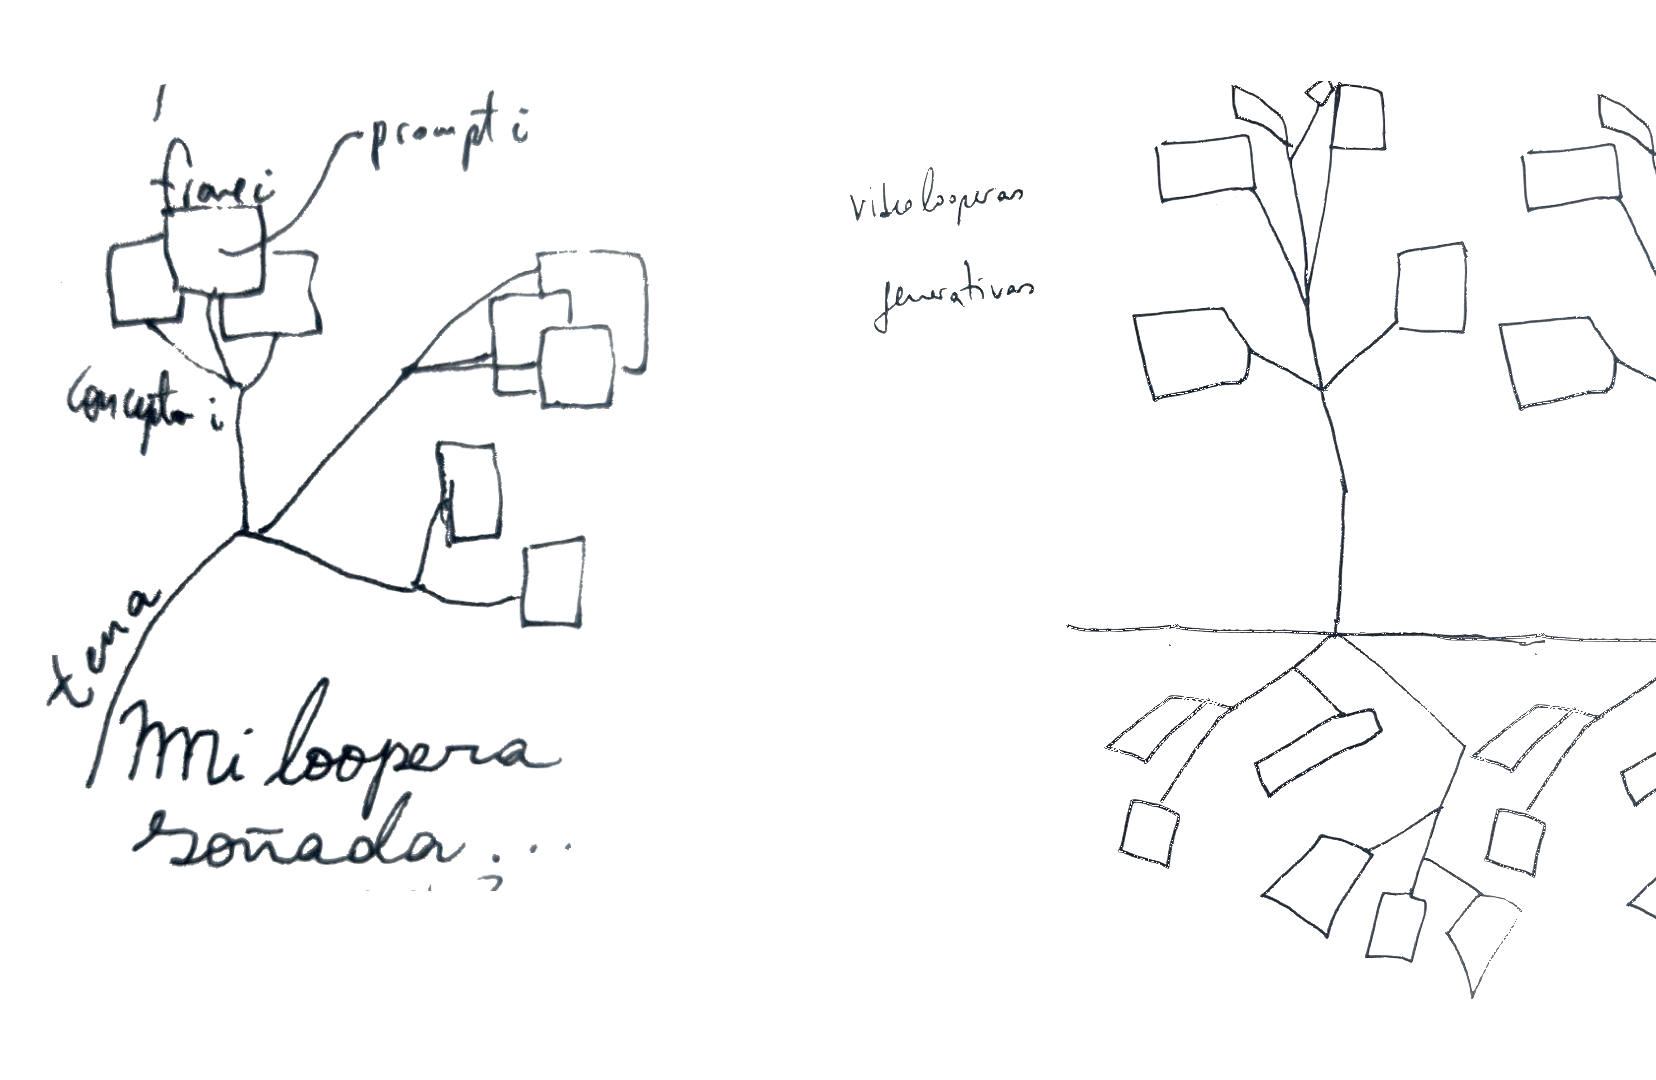 prompt i
frame i
concepto i
tema
Mi loopera
soñada...
videolooperas
generativas